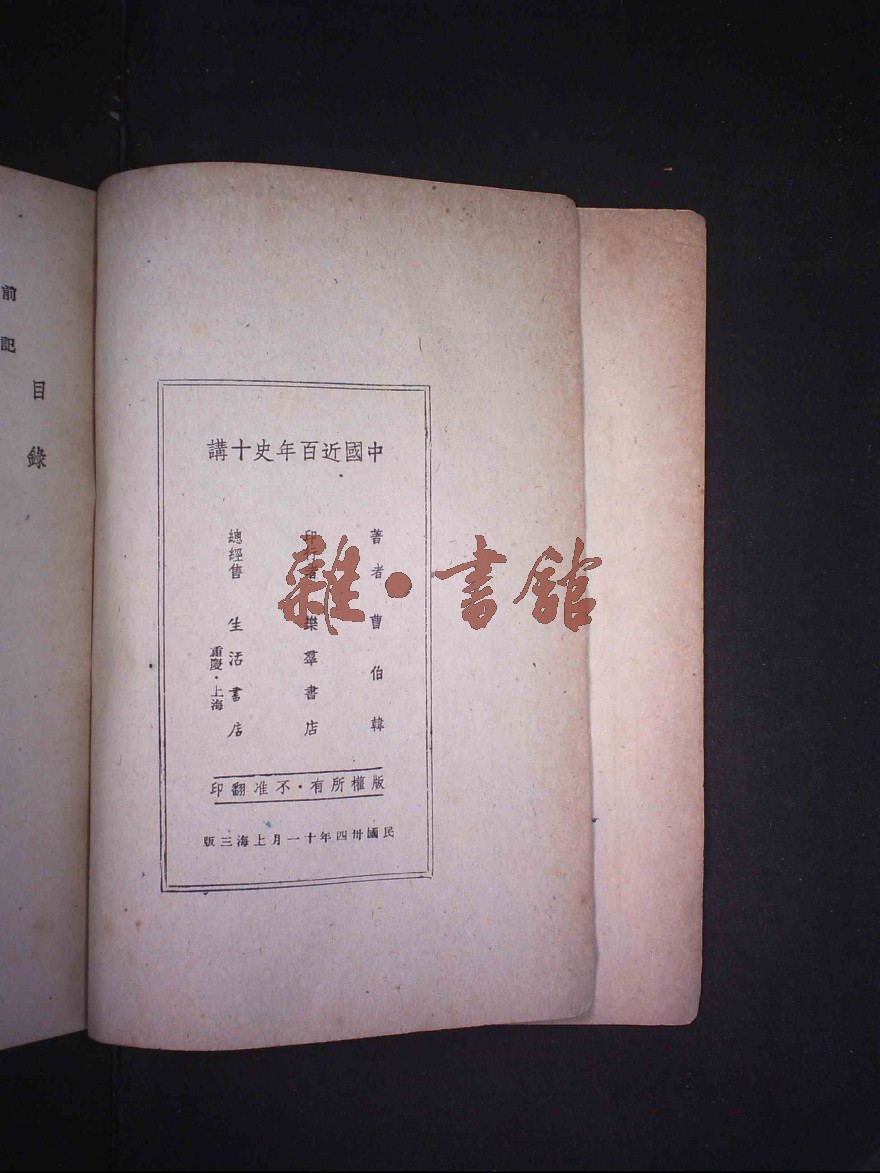 中國近百年史十講
著者 曹伯韓
印行者 樂羣書店
總經售 生活書店
重慶·上海
版權所有·不准翻印
民國卅四年十一月上海三版
目錄
前記
雜·書館